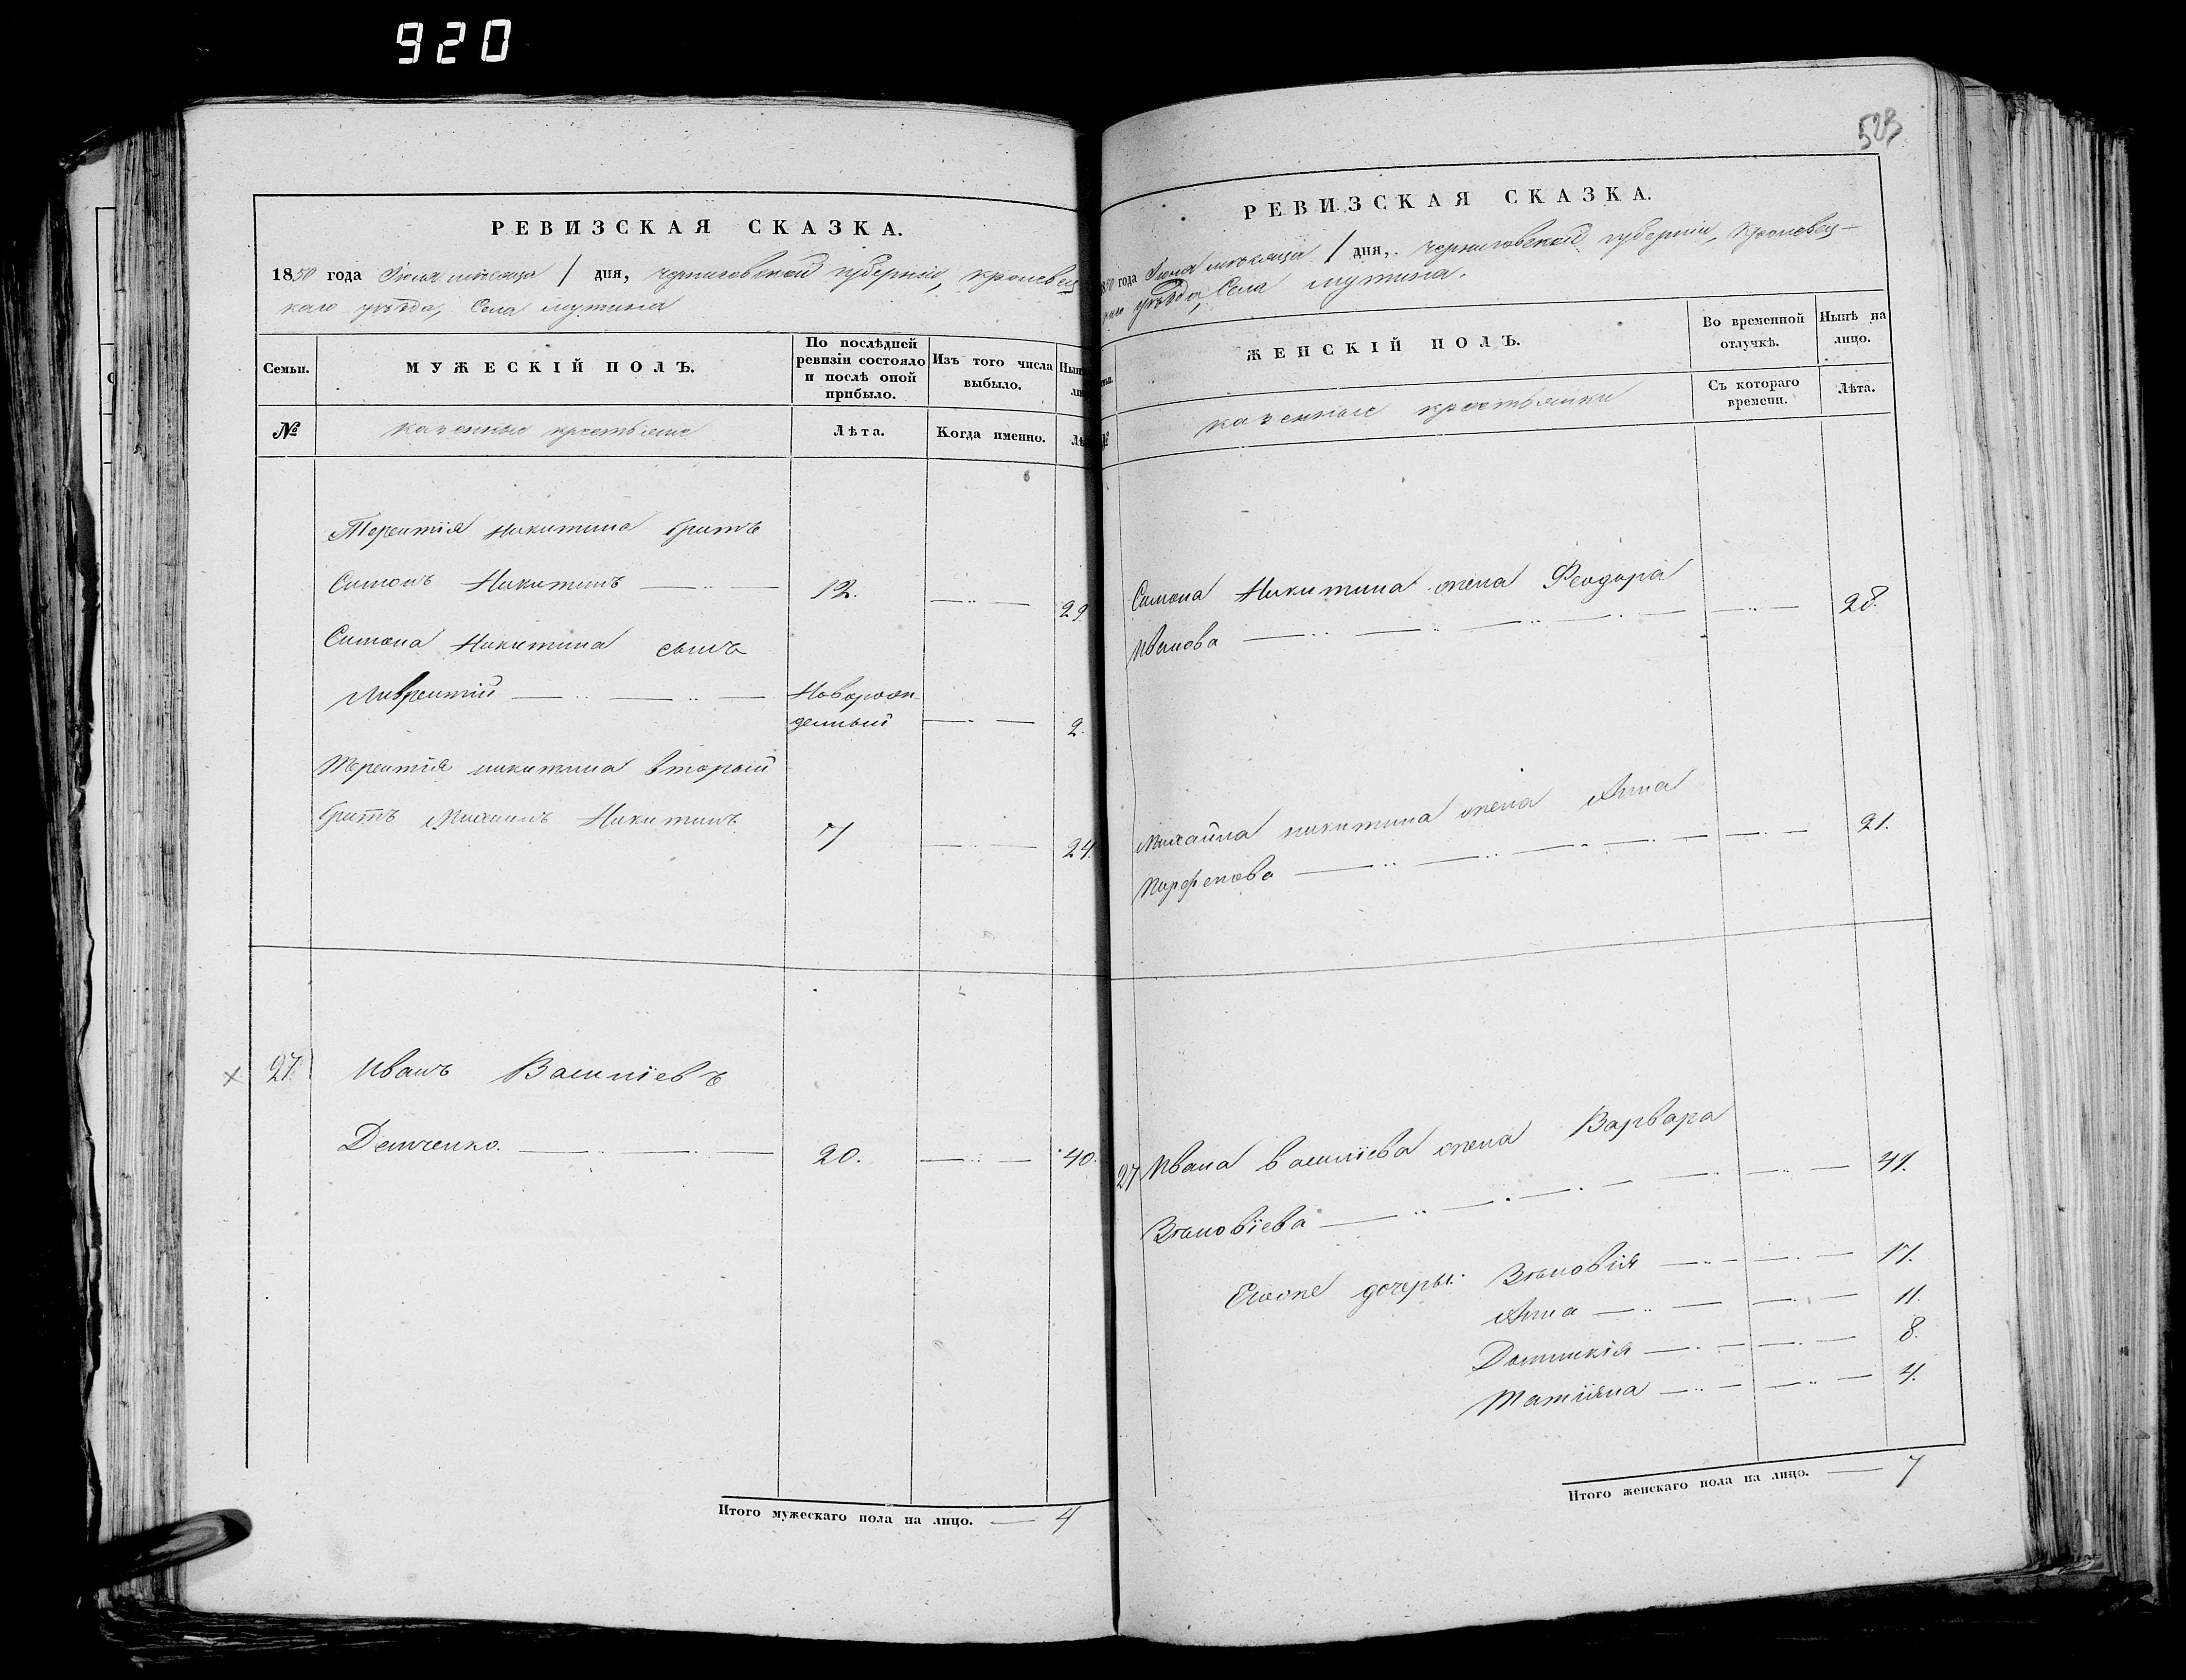 920
РЕВИЗСКАЯ СКАЗКА.
1850 года Іюня мѣсяца 1 дня, черниговской губерніи, кролевец
каго уѣзда, Села мутина
Семьи.
МУЖЕСКІЙ ПОЛЪ.
По послѣдней
ревизіи состояло
и послѣ оной
прибыло.
Изъ того числа
выбыло.
№
казенные крестьяне
Лѣта.
Когда именно.
Терентія Никитина братъ
Симонъ Никитинъ 12. 29
Симона Никитина сынъ
Лаврентій Новорож-
денный 2.
Терентія никитина вторый
братъ Михаилъ Никитинъ 7 24.
27 Иванъ Василіевъ
Демченко. 20. 40.
Итого мужескаго пола на лицо. 4
523
РЕВИЗСКАЯ СКАЗКА.
1850 года Іюня мѣсяца 1 дня, черниговской губерніи, Кролевец-
каго уѣзда, Села мутина.
ЖЕНСКІЙ ПОЛЪ.
Во временной
отлучкѣ.
Нынѣ на
лицо.
№
казенные крестьянки
Съ котораго
времени.
Лѣта.
Симона Никитина жена Феодора
Иванова 28.
Михайла никитина жена Анна
Парфенова 21.
27 Ивана василіева жена Варвара
Зѣновіева 41.
Егоже дочеры: Зѣновія 17.
Анна 11.
Домникія 8.
Татіяна 4.
Итого женскаго пола на лицо. 7